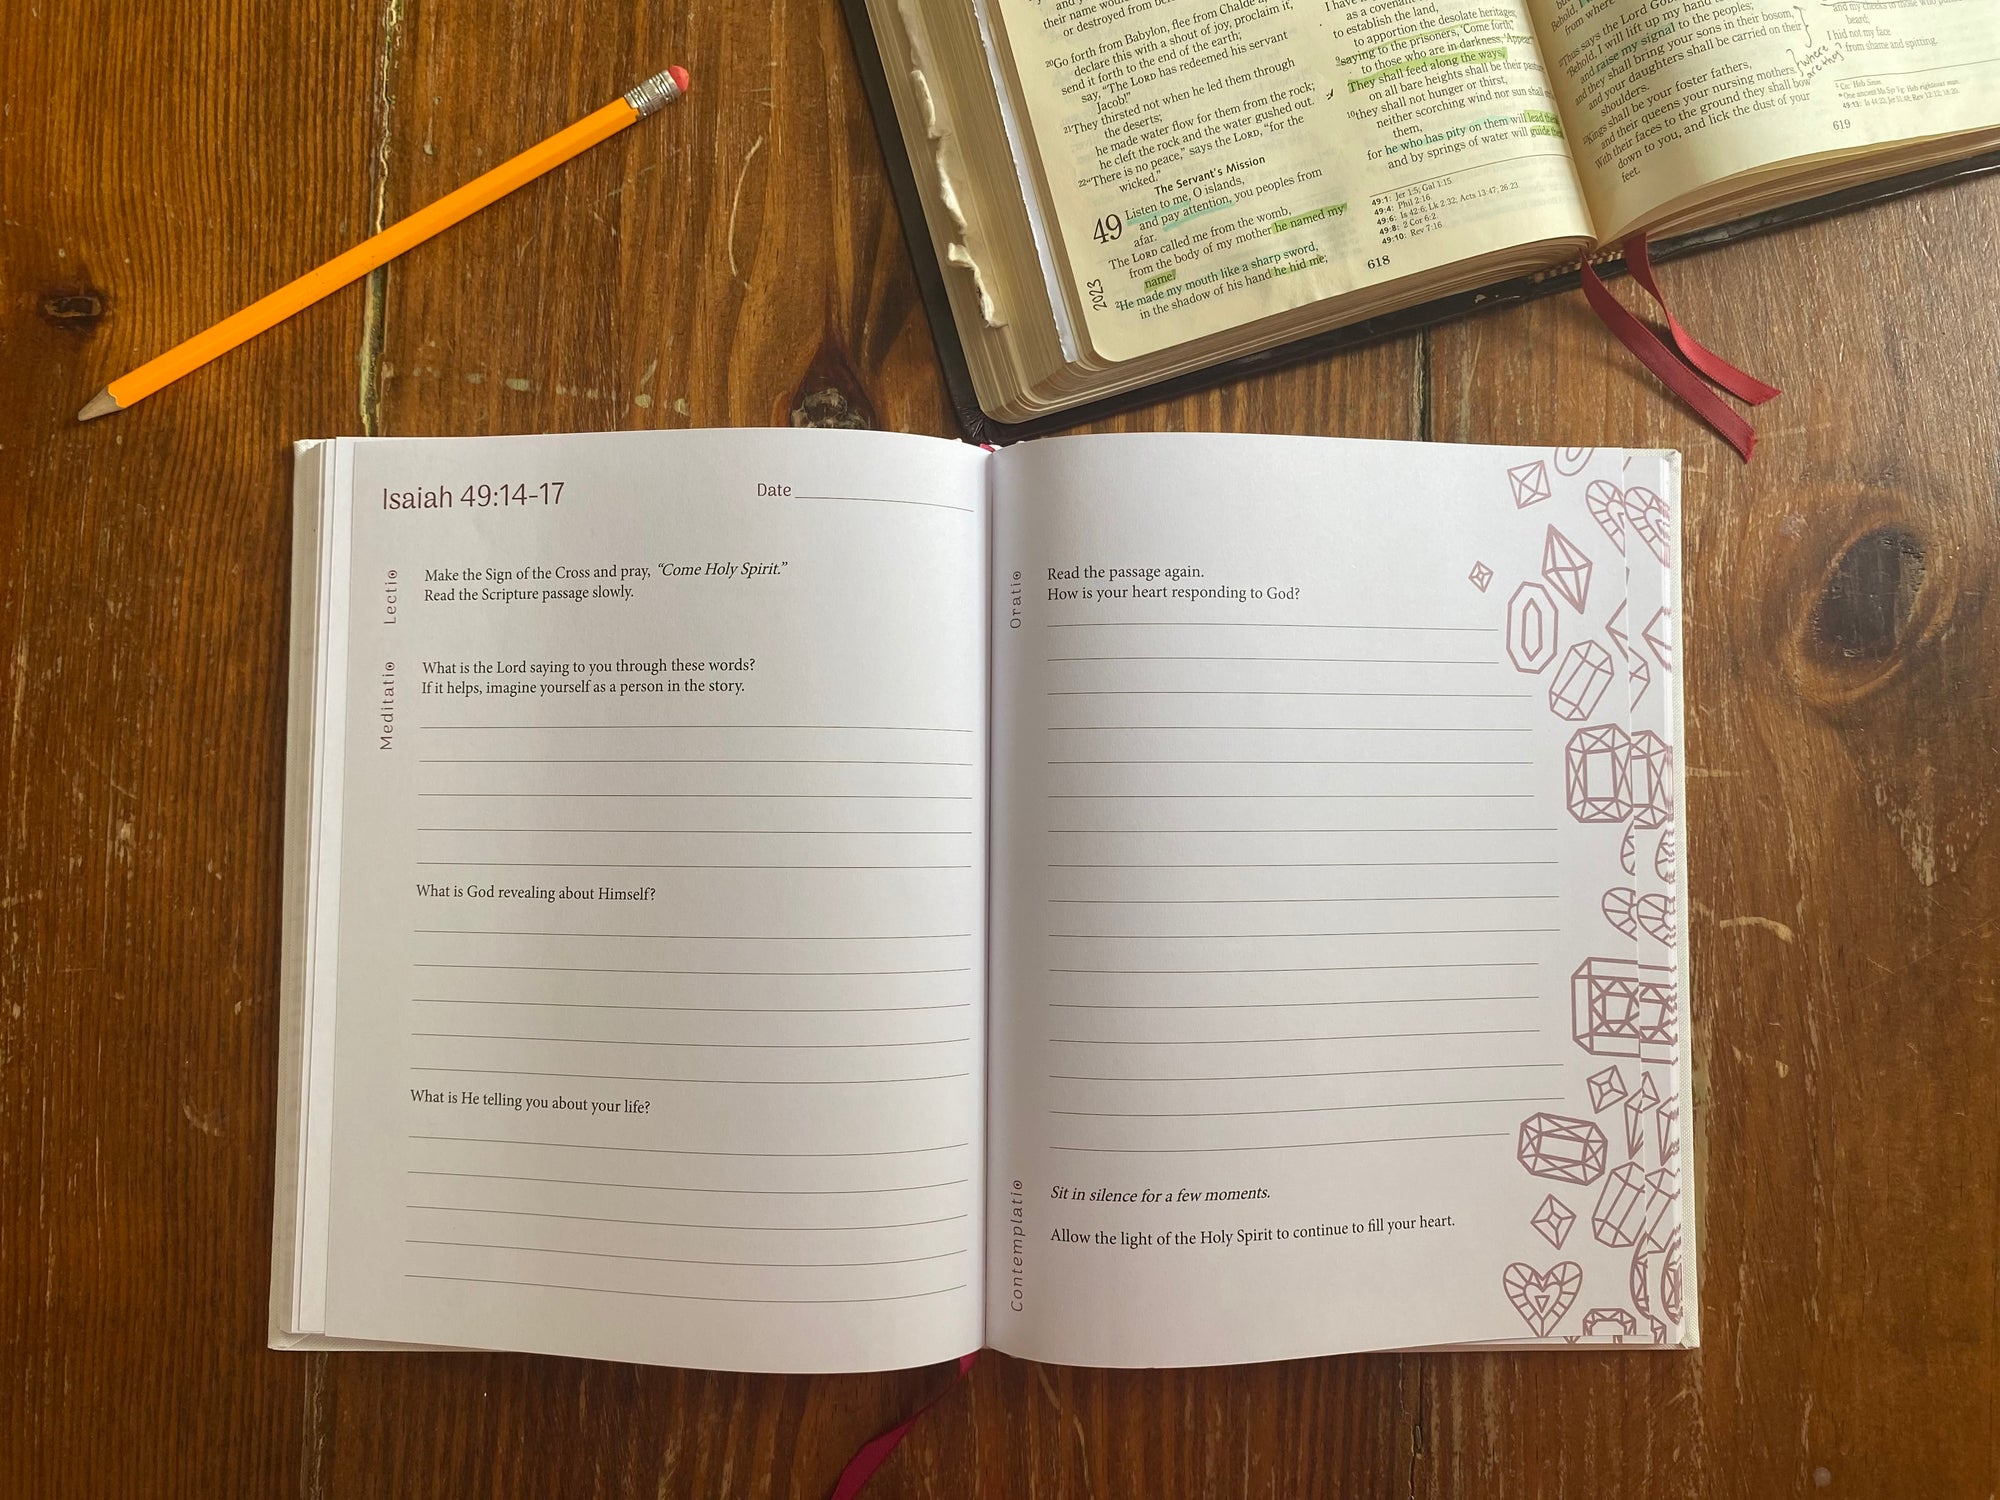 their name wou
or destroyed from be
²⁰Go forth from Babylon, flee from Chalde
declare this with a shout of joy, proclaim it,
send it forth to the end of the earth;
say, "The LORD has redeemed his servant
Jacob!"
²¹They thirsted not when he led them through
the deserts;
he made water flow for them from the rock;
he cleft the rock and the water gushed out.
²²"There is no peace," says the LORD, "for the
wicked."
The Servant's Mission
49 Listen to me, O islands,
and pay attention, you peoples from
afar.
The LORD called me from the womb,
from the body of my mother he named my
name.
²He made my mouth like a sharp sword,
in the shadow of his hand he hid me;
2023
I have
as a covenant
to establish the land,
to apportion the desolate heritages;
⁹saying to the prisoners, 'Come forth,'
to those who are in darkness, 'Appear.'
They shall feed along the ways,
on all bare heights shall be their pasture
¹⁰they shall not hunger or thirst,
neither scorching wind nor sun shall
them,
for he who has pity on them will lead them
and by springs of water will guide them
49:1: Jer 1:5; Gal 1:15.
49:4: Phil 2:16
49:6: Is 42:6; Lk 2:32; Acts 13:47; 26:23.
49:8: 2 Cor 6:2.
49:10: Rev 7:16.
618
from where
²²Thus says the Lord GOD
"Behold, I will lift up my hand
and raise my signal to the peoples;
and they shall bring your sons in their bosom,
and your daughters shall be carried on their
shoulders.
²³Kings shall be your foster fathers,
and their queens your nursing mothers.
With their faces to the ground they shall bow
down to you, and lick the dust of your
feet.
where
are they?
beard;
I hid not my face
from shame and spitting.
619
Isaiah 49:14-17
Date
Lectio
Make the Sign of the Cross and pray, "Come Holy Spirit."
Read the Scripture passage slowly.
Meditatio
What is the Lord saying to you through these words?
If it helps, imagine yourself as a person in the story.
What is God revealing about Himself?
What is He telling you about your life?
Oratio
Read the passage again.
How is your heart responding to God?
Contemplatio
Sit in silence for a few moments.
Allow the light of the Holy Spirit to continue to fill your heart.